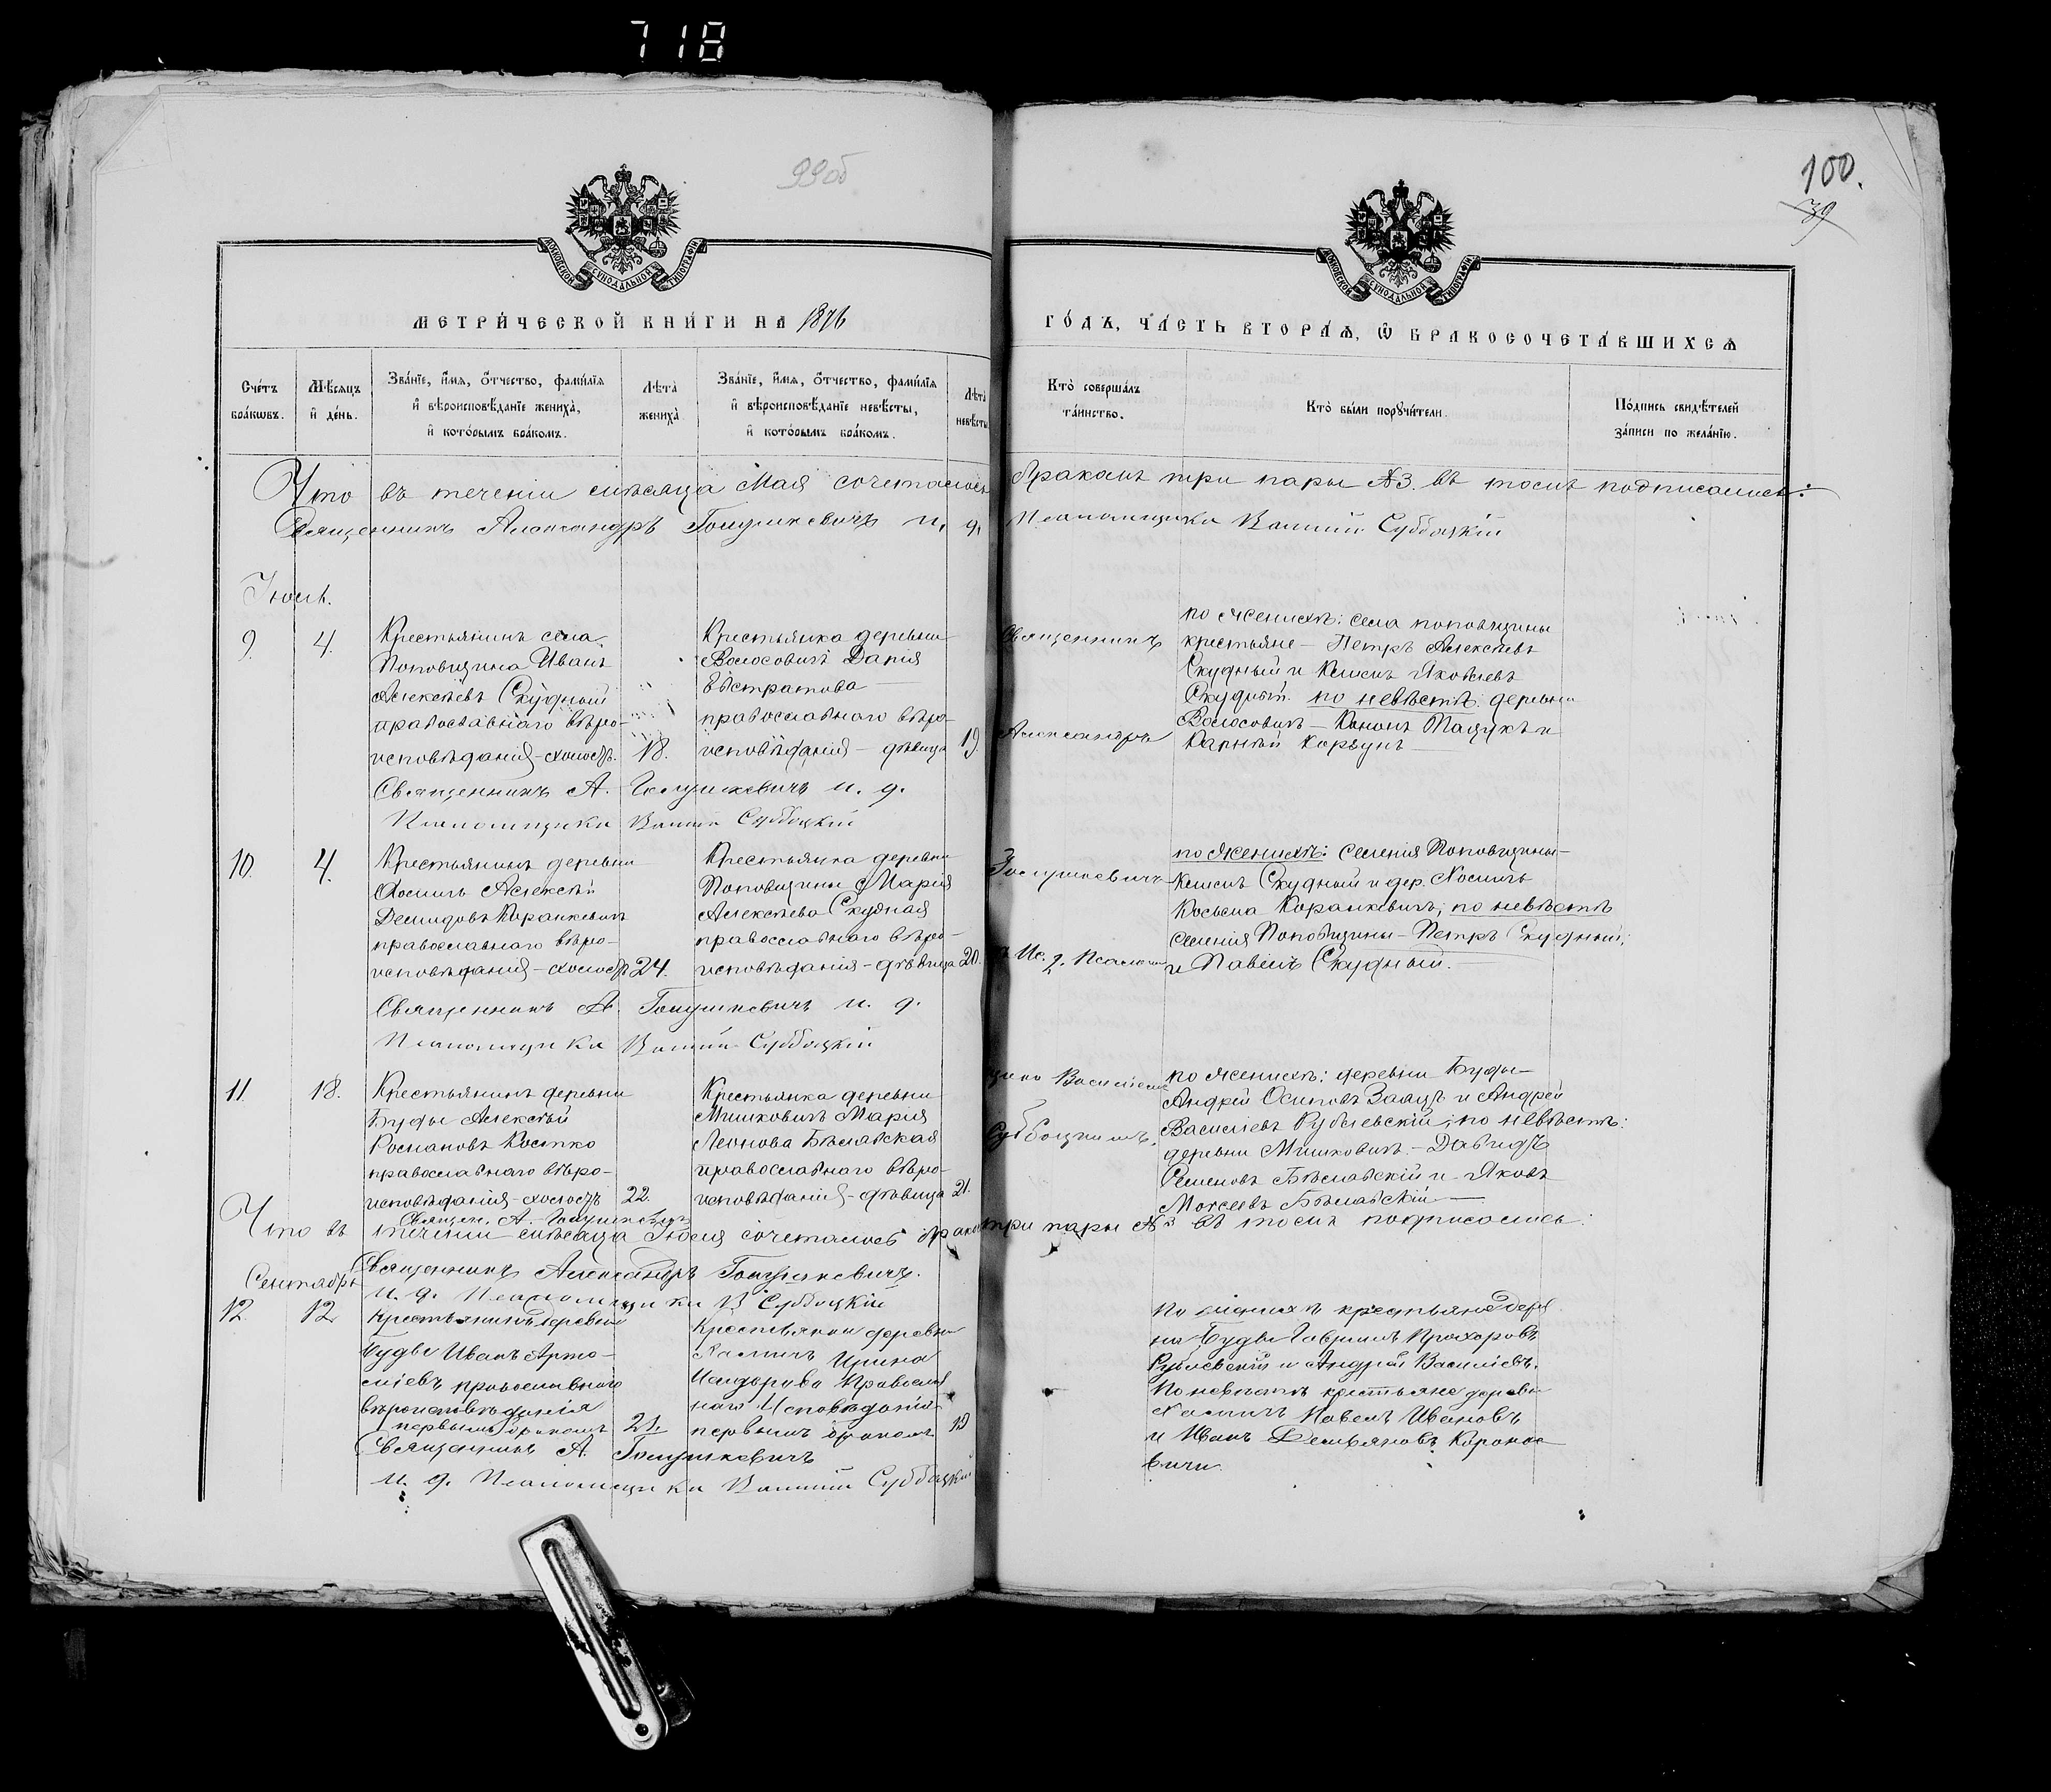 718
99об
100.
39
МОСКОВСКОЙ СУНОДАЛЬНОЙ ТИПОГРАФІИ
МОСКОВСКОЙ СУНОДАЛЬНОЙ ТИПОГРАФІИ
МЕТРИ́ЧЕСКОЙ КНИ́ГИ НА 1876
ГО́ДЪ, ЧА́СТЬ ВТОРА́Ѧ, Ѽ БРАКОСОЧЕТА́ВШИХСѦ
Сче́тъ бра́кѡвъ.
Мѣ́сѧцъ и҆ де́нь.
Зва́нїе, и҆́мѧ, ѻ҆́тчество, фами́лїѧ и҆ вѣроисповѣ́данїе жениха̀, и҆ кото́рымъ бра́комъ.
Лѣ́та жениха̀
Зва́нїе, и҆́мѧ, ѻ҆́тчество, фами́лїѧ и҆ вѣроисповѣ́данїе невѣ́сты, и҆ кото́рымъ бра́комъ.
Лѣ́та невѣ́сты
Кто̀ соверша́лъ та́инство.
Кто̀ бы́ли порꙋчи́тели.
По́дпись свидѣ́телей за́писи по жела́нїю.
Что въ теченіи мѣсяца Мая сочеталось бракомъ три пары №3. въ томъ подписались:
Священникъ Александръ Голушкевичъ и. д. Псаломщика Василій Суббоцкій
Іюль.
9.
4.
Крестьянинъ села
Поповщина Иванъ
Алексѣевъ Скудный
православнаго вѣро-
исповѣданія-холостъ.
18.
Крестьянка деревни
Волосовичъ Дарія
Евстратова
православнаго вѣро-
исповѣданія - дѣвица
19.
Священникъ
Александръ
по женихѣ: села поповщины
крестьяне - Петръ Алексѣевъ
Скудный и Климъ Яковлевъ
Скудный. по невѣстѣ: деревни
Волосовичъ - Кононъ и
Карпѣй
Священникъ А. Голушкевичъ и. д.
Псаломщика Василій Суббоцкій
10.
4.
Крестьянинъ деревни
Холмичъ Алексѣй
Демидовъ Коранкевичъ
православнаго вѣро-
исповѣданія-холостъ
24.
Крестьянка деревни
Поповщины Марія
Алексѣева Скудная
православнаго вѣро-
исповѣданія-дѣвица
20.
Голушкевичъ
Ис. д. Псалом
по женихѣ: селенія Поповщины -
Климъ Скудный и дер. Холмичъ
Косьма Коранкевичъ; по невѣстѣ
селенія Поповщины - Петръ Скудный;
и Павелъ Скудный.
Священникъ А. Голушкевичъ и. д.
Псаломщика Василій Суббоцкій
11.
18.
Крестьянинъ деревни
Буды Алексѣй
Романовъ Костко
православнаго вѣро-
исповѣданія-холостъ
22.
Крестьянка деревни
Мишковичъ Марія
Леонова Бѣлавская
православнаго вѣро-
исповѣданія-дѣвица
21.
щика Василіемъ
Суббоцкимъ.
по женихѣ: деревни Буды -
Андрей Осиповъ Заяцъ и Андрей
Василіевъ Рублевскій; по невѣстѣ:
деревни Мишковичъ. - Давидъ
Семеновъ Бѣлавскій и Яковъ
Моисеевъ Бѣлавскій
Священ. А. Голушкевичъ
Что въ теченіи мѣсяца Іюля сочеталось бракомъ три пары №3 въ томъ подписались:
Священникъ Александръ Голушкевичъ.
и. д. Псаломщика В Суббоцкій
Сентябрь
12
12
Крестьянинъ деревни
Буды Иванъ Арте-
міевъ православнаго
вѣроисповѣданія
первымъ бракомъ
21
Крестьянки деревни
Холмичъ Ирина
православ
наго Исповѣданія
первымъ бракомъ
19
По женихѣ крестьяне дерев
ни Буды Гавріилъ Прохоровъ
Рублевскій и Андрей Василіевъ.
По невѣстѣ крестьяне деревни
Холмичъ Павелъ Ивановъ
и Иванъ Демьяновъ Коранке
вичи
Священникъ А. Голушкевичъ
и. д. Псаломщика Василій Суббоцкій